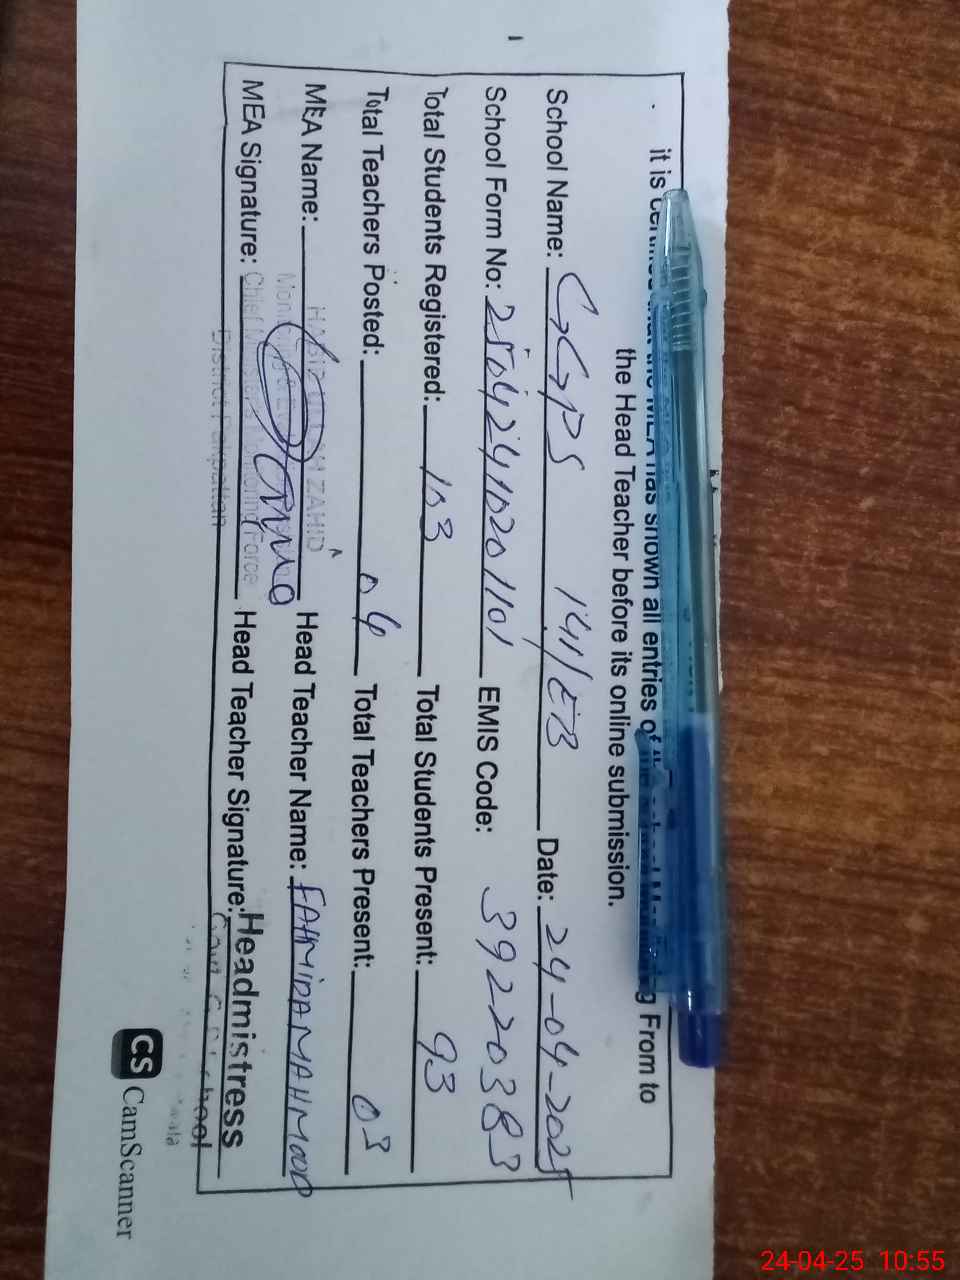 it is certified that the MEA has shown all entries of the School Monitoring From to
the Head Teacher before its online submission.
School Name: GGPS 141/EB Date: 24-04-2025
School Form No: 25042410201101 EMIS Code: 39220383
Total Students Registered: 103 Total Students Present: 93
Total Teachers Posted: 04 Total Teachers Present: 03
MEA Name: ZAHID Head Teacher Name: FAHMIDA MAHMOOD
MEA Signature: Chief Force Head Teacher Signature: Headmistress
District Pakpattan School
CS CamScanner
24-04-25 10:55